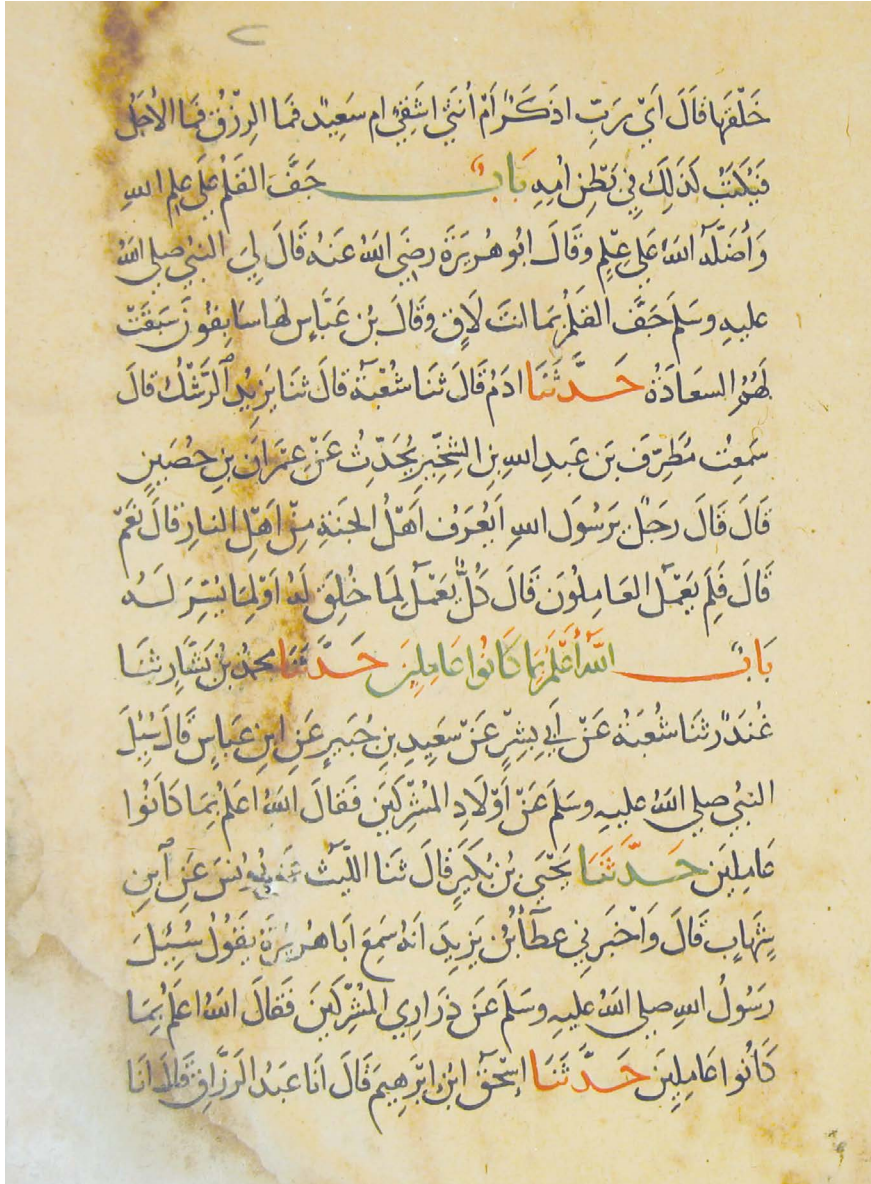 خَلْقَهَا قَالَ اَيْ رَبِّ اذَكَرًا اَمْ اُنثَي اشَقِيٌ ام سَعِيد فمَا الرِزْقُ فمَا الاَجَلُ
فَيُكتَبُ كَذَلِكَ فِي بَطْنِ امِهِ بَابٌ جَفَّ القَلَمُ عَلَي عِلمِ اللهِ
وَاَضَلَّهُ اللهُ عَلَي عِلْمٍ وقَالَ ابُو هُرَيرَةَ رضَي اللهُ عَنهُ قَالَ لِيَ النبيُ صلي اللهُ
عليهِ وسَلمَ جَفَّ القلَمُ بمَا انتَ لَاقٍ وقَالَ بْن عَبَّاسٍ لهَا سَابِقُونَ سَبَقَتْ
لَهُمُ السعَادَةُ حَدَّثَنَا ادَمُ قَالَ ثنَا شُعْبَةُ قَالَ ثنَا يَزِيدُ الرِّشْكُ قالَ
سَمِعتُ مُطَرِّفَ بنَ عَبدِ اللهِ بنِ الشِخِّيرِ يُحَدِّثُ عَنْ عِمرَانَ بنِ حصَينٍ
قَالَ قَالَ رَجَلٌ يرَسُولَ اللهِ ايُعرَفُ اَهْلُ الجَنةِ مِنْ اَهْلِ النارِ قالَ نَعَمْ
قَالَ فَلِمَ يَعْمَلُ العَامِلُونَ قَالَ كُلٌّ يَعْمَلُ لِمَا خُلِقَ لَهُ اَوْ لِمَا يُسِّرَ لَهُ
بَابٌ اللهُ اَعْلَمُ بمَا كَانُوا عَامِلِينَ حَدَّثنَا محمدُ بْنُ بَشَّارٍ ثنَا
غُندَرٌ ثنَا شُعبَةُ عَنْ اَبِي بِشْرٍ عَنْ سَعِيدِ بنِ جُبَيرٍ عَنِ ابنِ عَباسٍ قَالَ سُئِلَ
النبيُ صلي اللهُ عليهِ وسَلمَ عَنْ اَوْلَادِ المُشْرِكينَ فَقالَ اللهُ اعَلمُ بِمَا كَانُوا
عَامِلِينَ حَدَّثَنَا يَحْيَي بْنُ بُكَيرٍ قَالَ ثنَا اللَّيثُ عَن يُونِسَ عَنِ ابنِ
شِهَابٍ قَالَ وَاَخْبَرَنِي عطَاُ بْنُ يَزِيدَ انهُ سَمِعَ ابَا هُرَيرَةَ يَقُولُ سُئِلَ
رَسُولُ اللهِ صلي اللهُ عليهِ وسَلمَ عَن ذرَارِي المُشْرِكينَ فَقَالَ اللهُ اعَلمُ بِمَا
كَانُوا عَامِلِينَ حَدَّثَنَا اِسْحَقُ ابنُ ابْرَهِيمَ قَالَ انَا عَبدُ الرَزَّاقِ قَالَ انَا